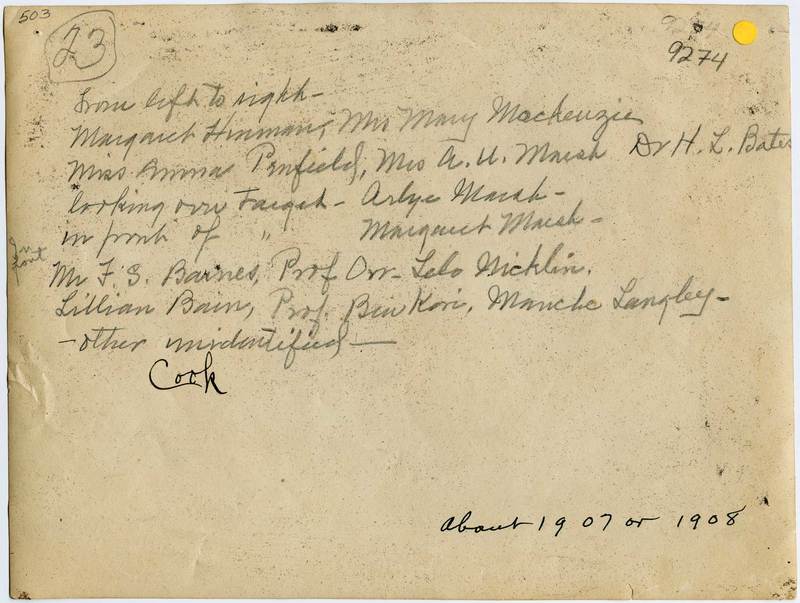 503
23
9274
From left to right-
Margaret Hinman, Mrs Mary Mackenzie
Miss Anna Penfield, Mrs A. U. Marsh Dr H. L. Bates
looking over Target - Arlye Marsh -
in front of " Margaret Marsh -
In front
Mr F. S. Barnes, Prof Orr - Lelo Nicklin,
Lillian Bain, Prof. Ben Kori, Manche Langley -
- other unidentified -
Cook
About 1907 or 1908